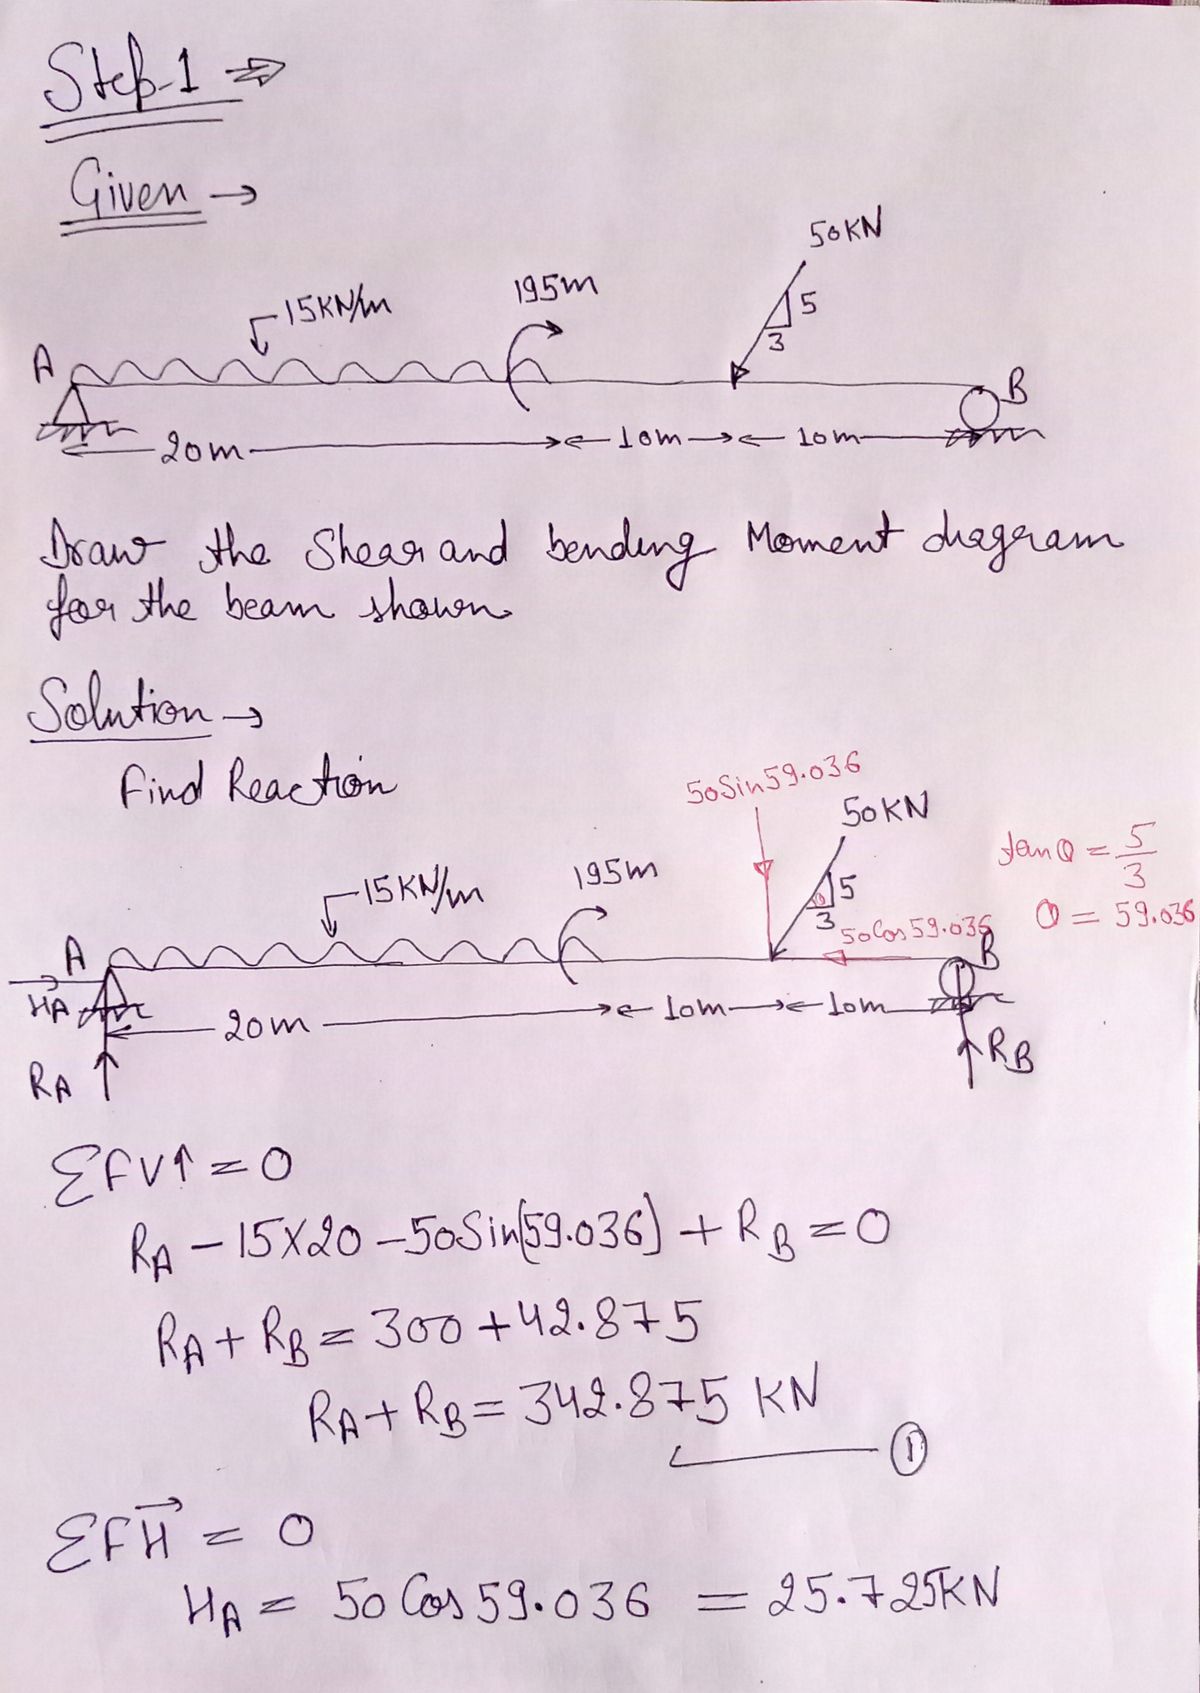 Step-1 ⇒
Given →
50KN
195m
15KN/m
5
3
A
B
20m
10m
10m
Draw the Shear and bending Moment diagram
for the beam shown
Solution →
Find Reaction
50Sin59.036
50KN
tanθ = 5/3
θ = 59.036
195m
15KN/m
5
θ
3
50Cos59.036
A
B
HA
20m
10m
10m
RA
RB
ΣFV↑ = 0
RA - 15×20 - 50Sin(59.036) + RB = 0
RA + RB = 300 + 42.875
RA + RB = 342.875 KN
①
ΣFH→ = 0
HA = 50 Cos 59.036 = 25.725KN